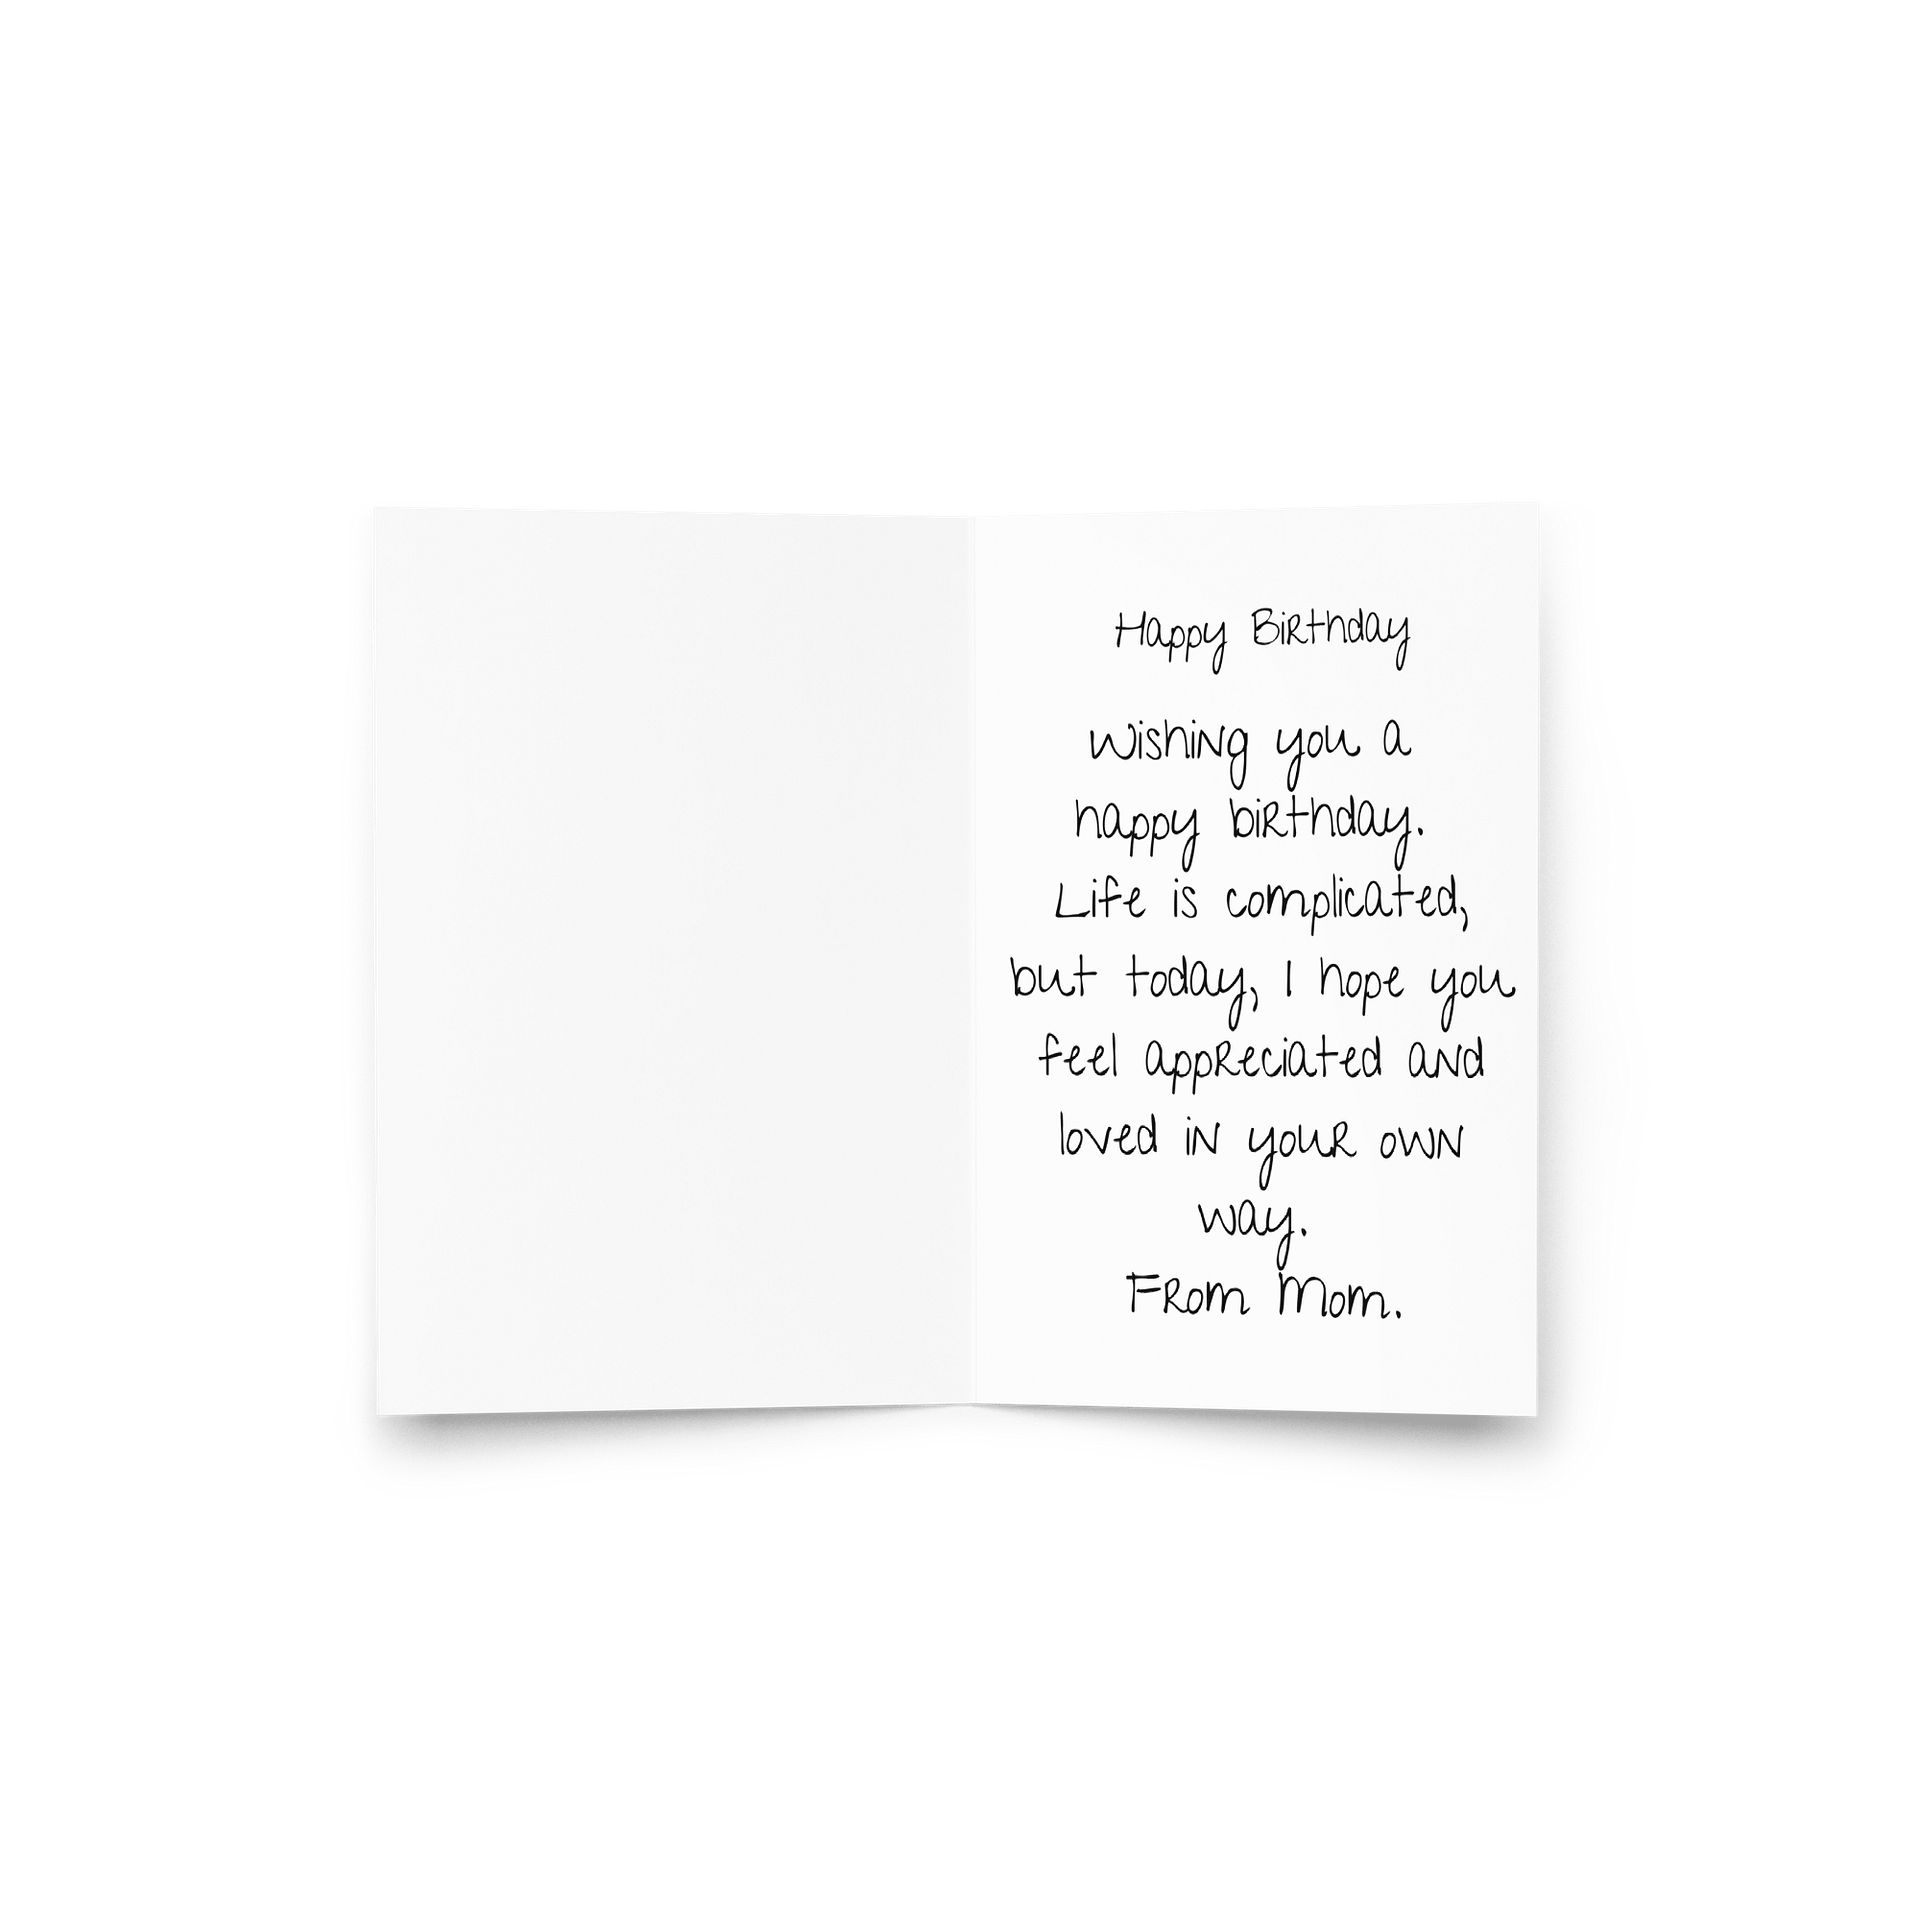 Happy Birthday
Wishing you a
happy birthday.
Life is complicated,
but today, I hope you
feel appreciated and
loved in your own
way.
From Mom.